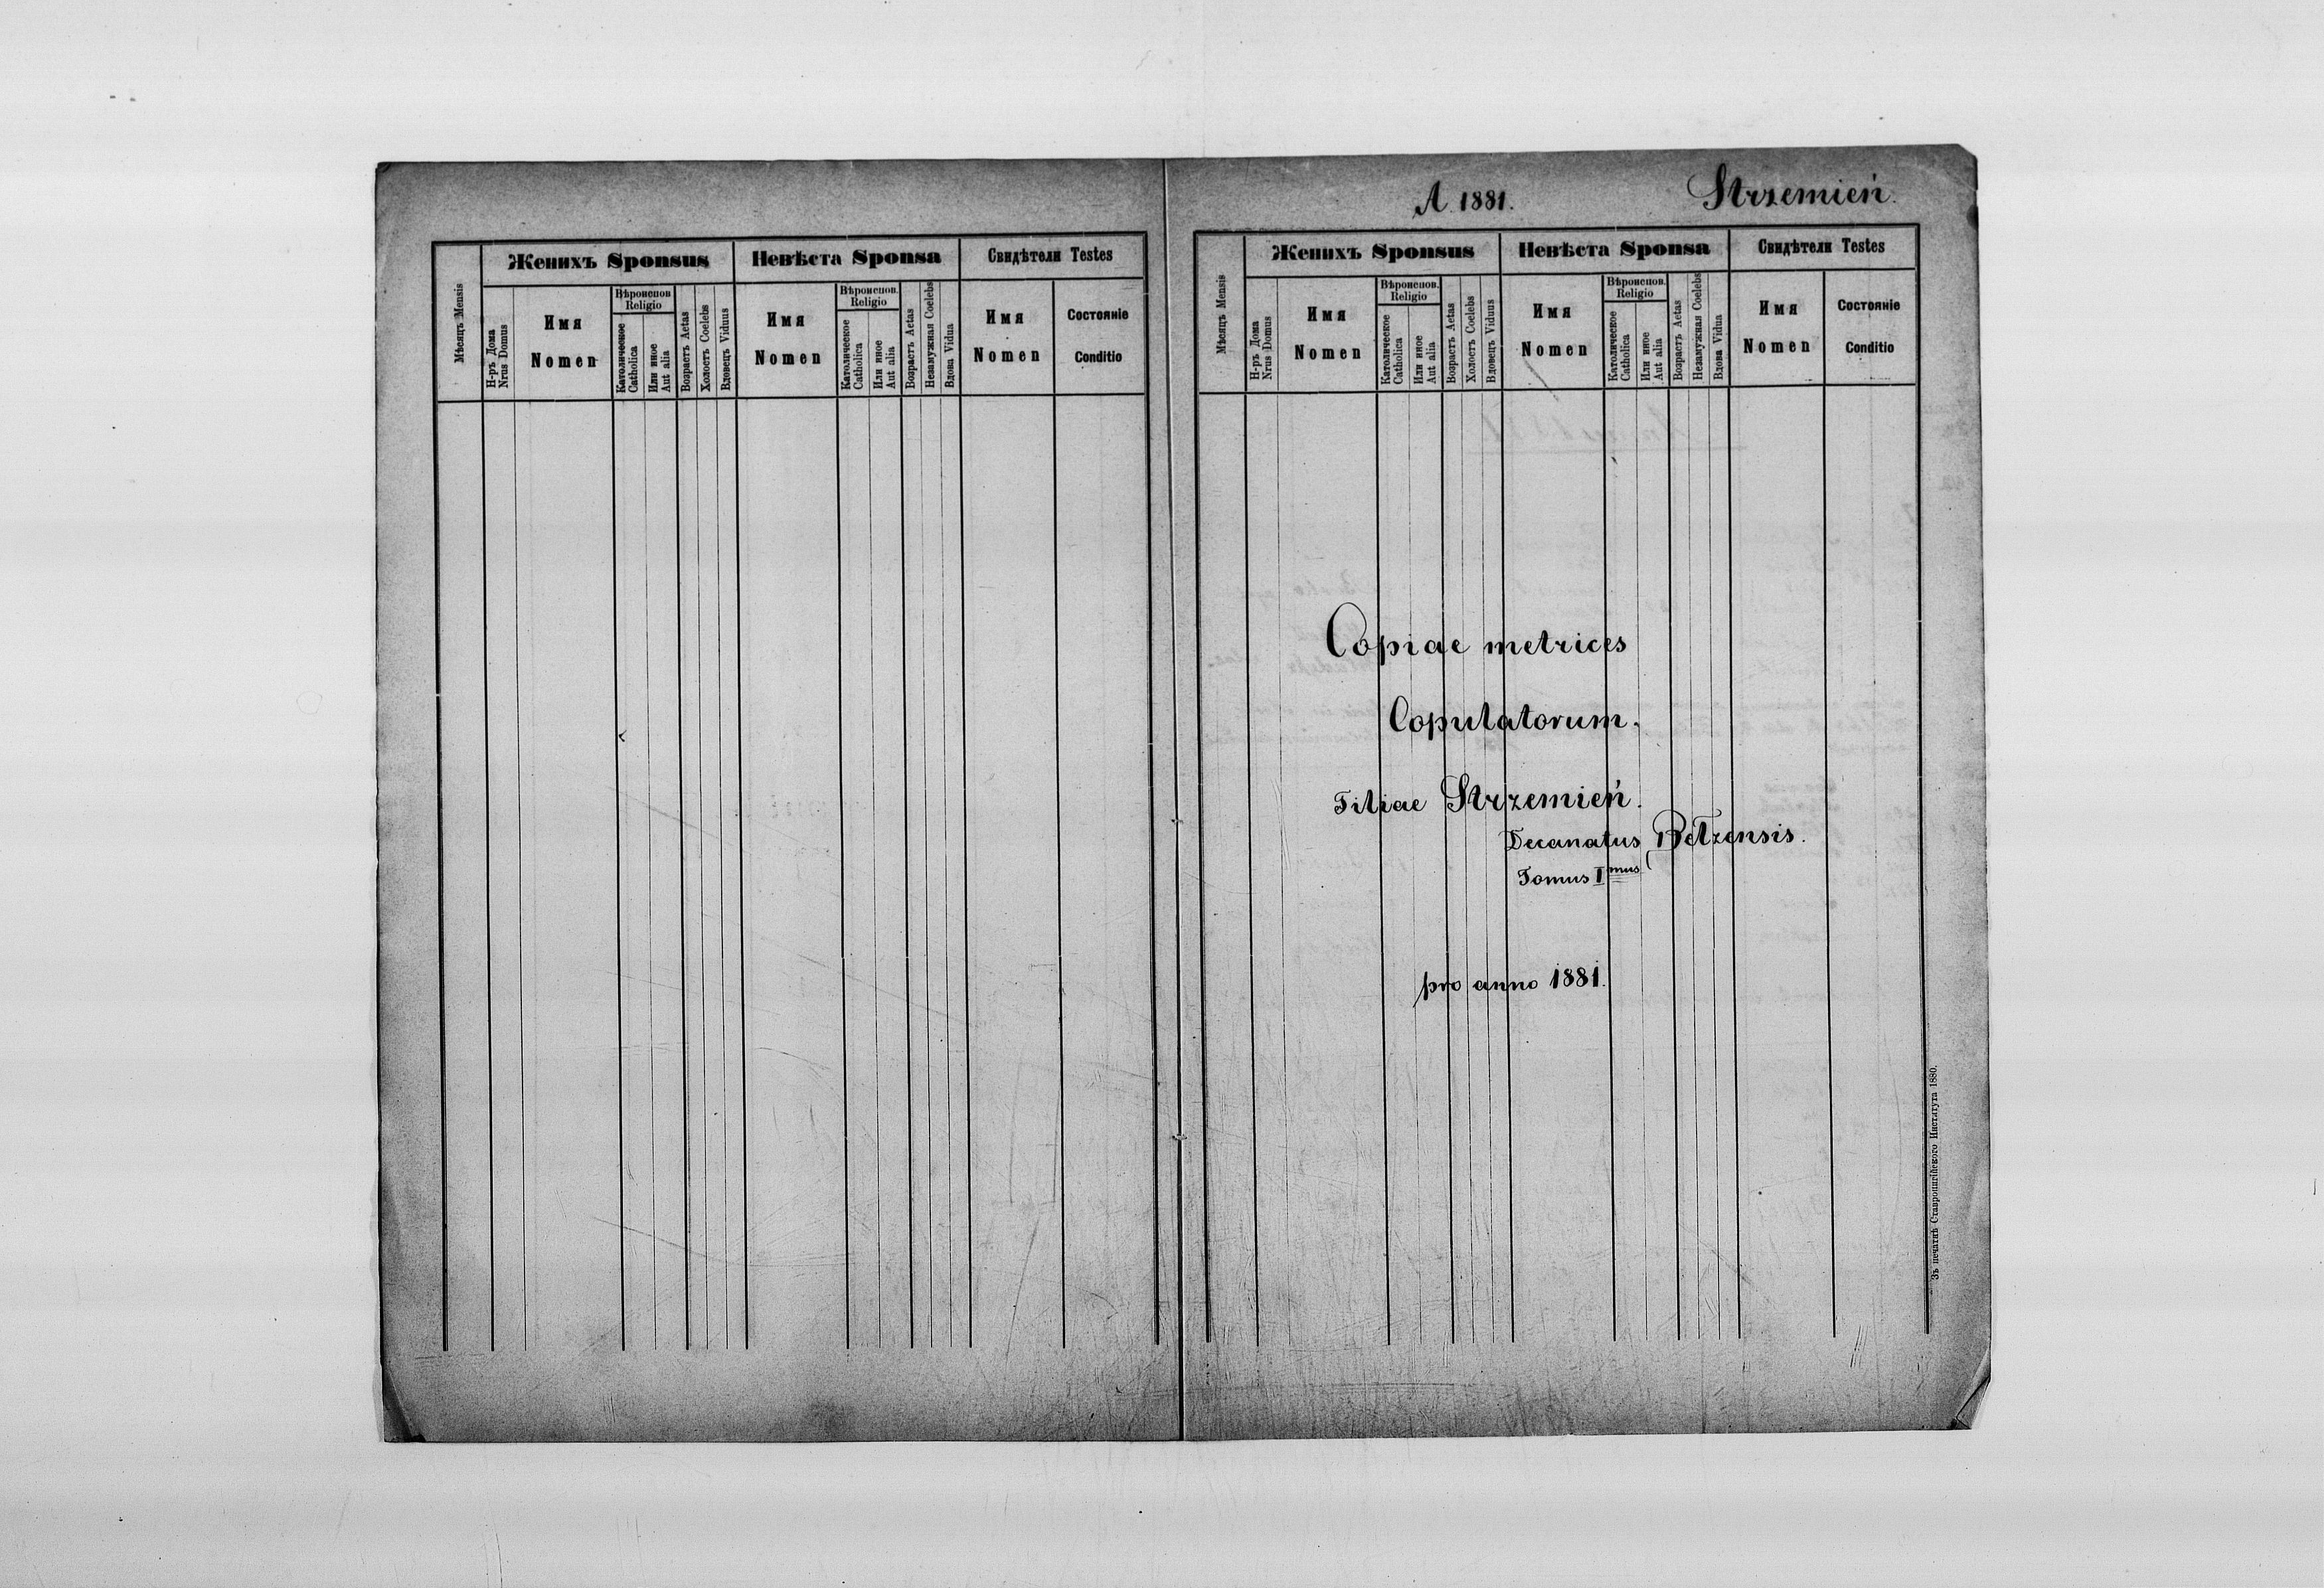 Мѣсяцъ Mensis
Женихъ Sponsus
Невѣста Sponsa
Свидѣтели Testes
Н-ръ Дома
Nrus Domus
Имя
Nomen
Вѣроиспов
Religio
Католическое
Catholica
Или иное
Aut alia
Возрастъ Aetas
Холостъ Coelebs
Вдовецъ Viduus
Имя
Nomen
Вѣроиспов.
Religio
Католическое
Catholica
Или иное
Aut alia
Возрастъ Aetas
Незамужная Coelebs
Вдова Vidua
Имя
Nomen
Состояніе
Conditio
A. 1881.
Strzemień.
Мѣсяцъ Mensis
Женихъ Sponsus
Невѣста Sponsa
Свидѣтели Testes
Н-ръ Дома
Nrus Domus
Имя
Nomen
Вѣроиспов.
Religio
Католическое
Catholica
Или иное
Aut alia
Возрастъ Aetas
Холостъ Coelebs
Вдовецъ Viduus
Имя
Nomen
Вѣроиспов.
Religio
Католическое
Catholica
Или иное
Aut alia
Возрастъ Aetas
Незамужная Coelebs
Вдова Vidua
Имя
Nomen
Состояніе
Conditio
Copiae metrices
Copulatorum.
Filiae Strzemień.
Decanatus Betzensis.
Tomus I mus
pro anno 1881.
Зъ печатнѣ Ставропигійского Института 1880.